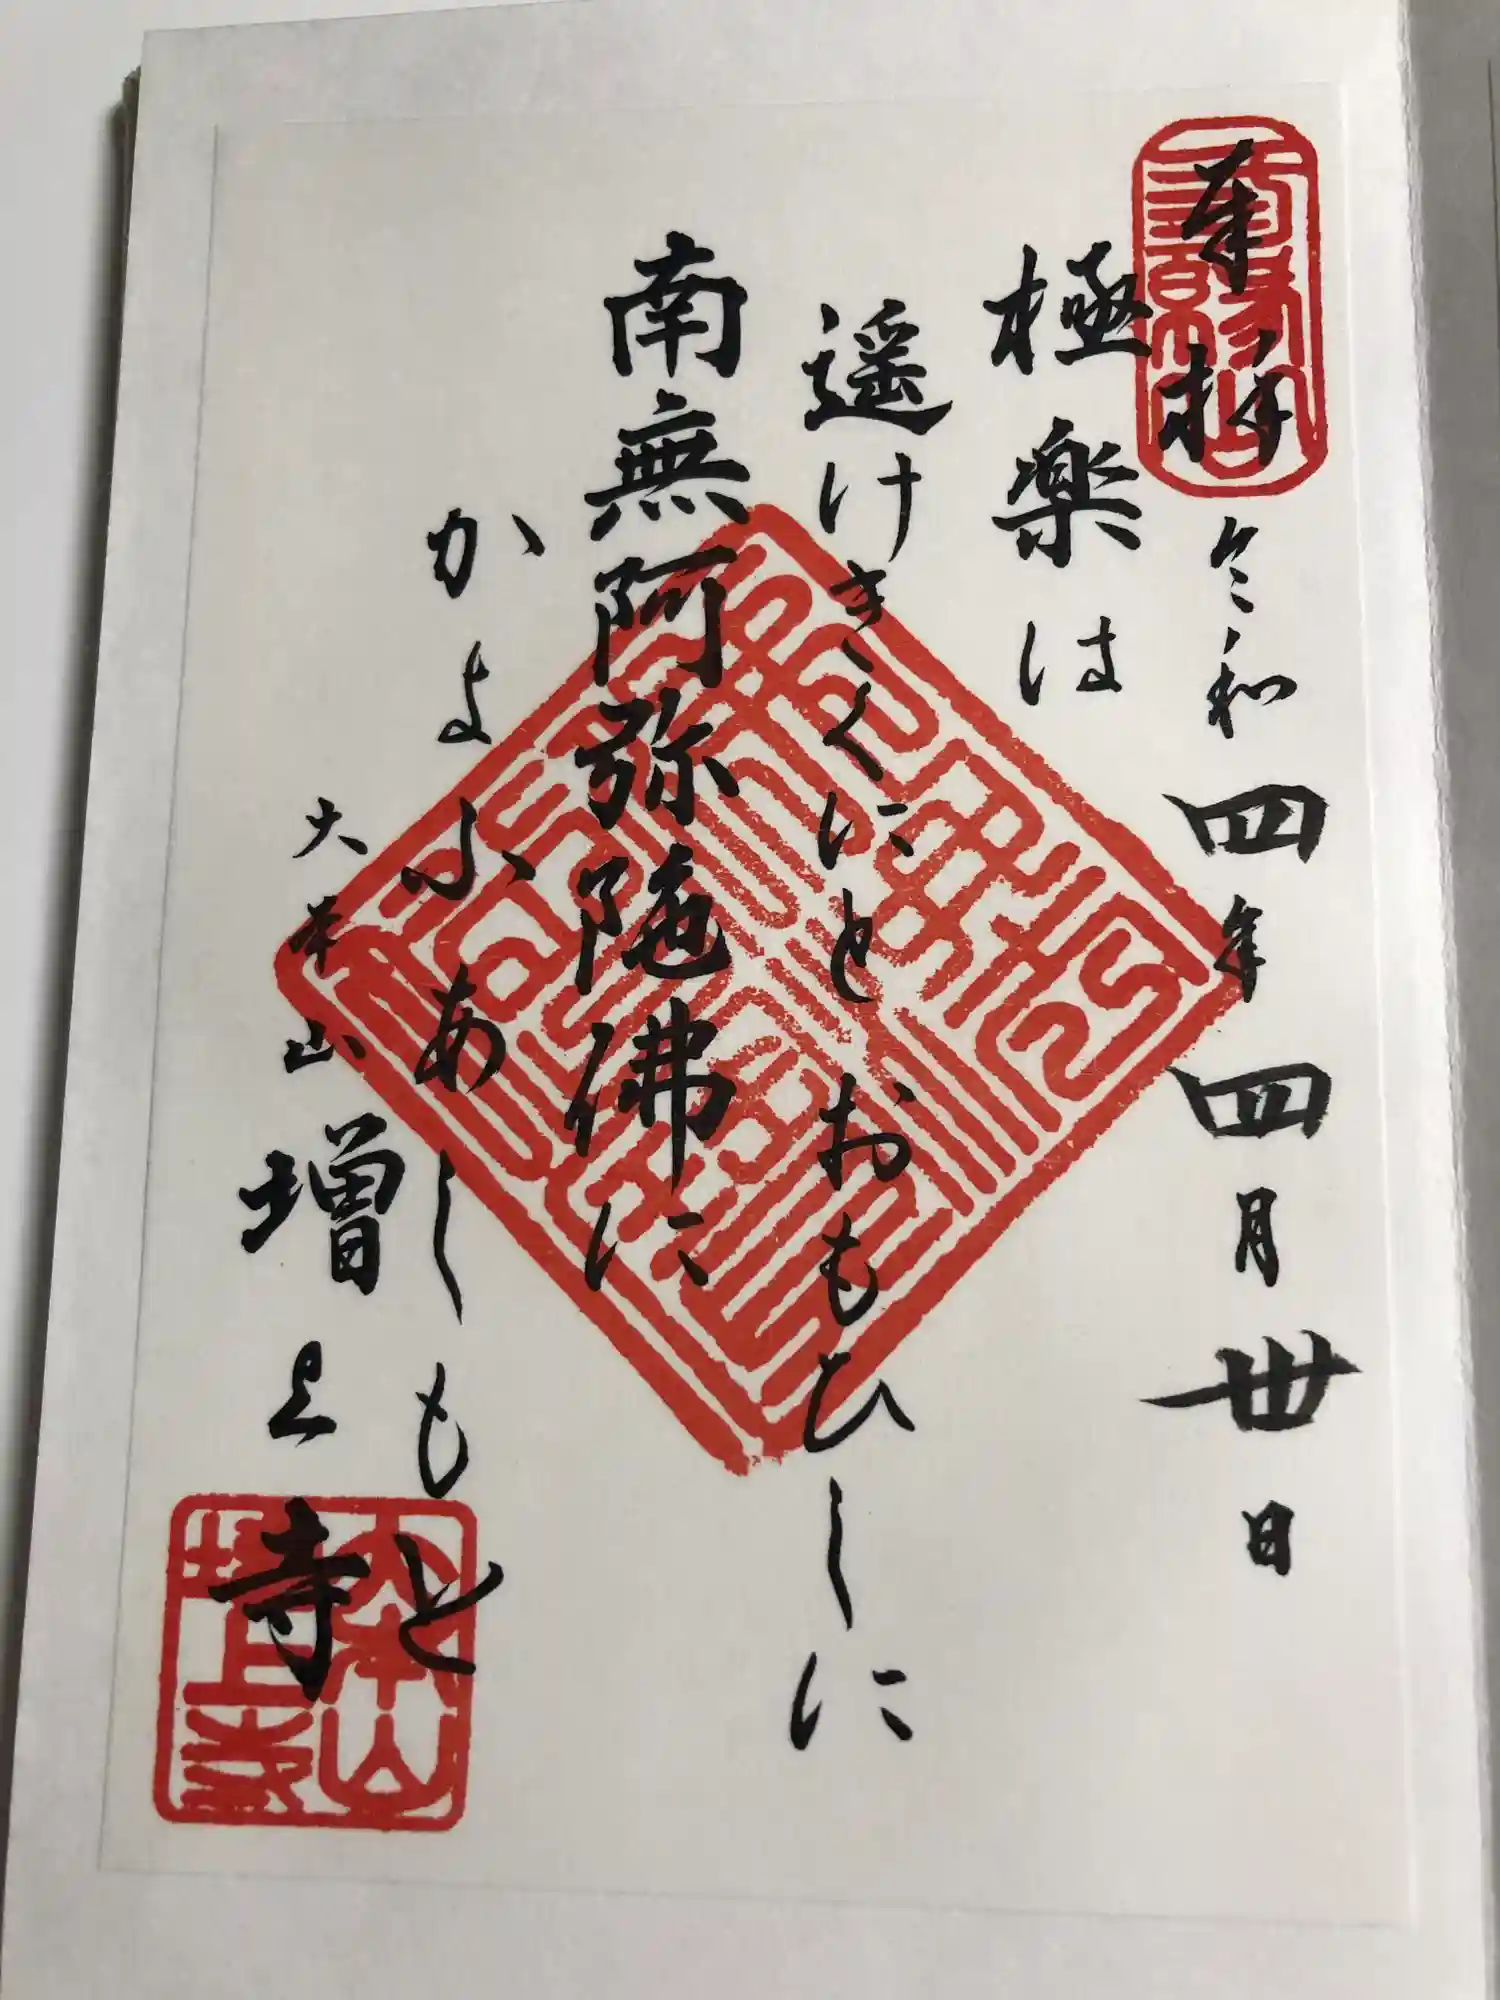 奉拝
令和四年四月卅日
極楽は
遥けきくにとおもひしに
南無阿弥陀佛に
かよふあしもと
大本山増上寺
大本山
増上寺